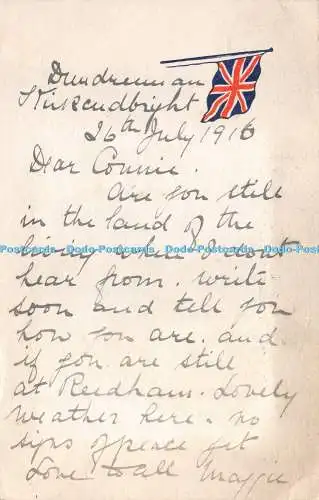 Dundrennan
Kirkcudbright
26th July 1916
Dear Connie.
are you still
in the land of the
hear from. write
soon and tell you
how you are. and
if you are still
at Reedham. Lovely
weather here. no
signs of peace yet
Love to all Maggie
Dodo-Postcards Dodo-Postcards Dodo-Postcards